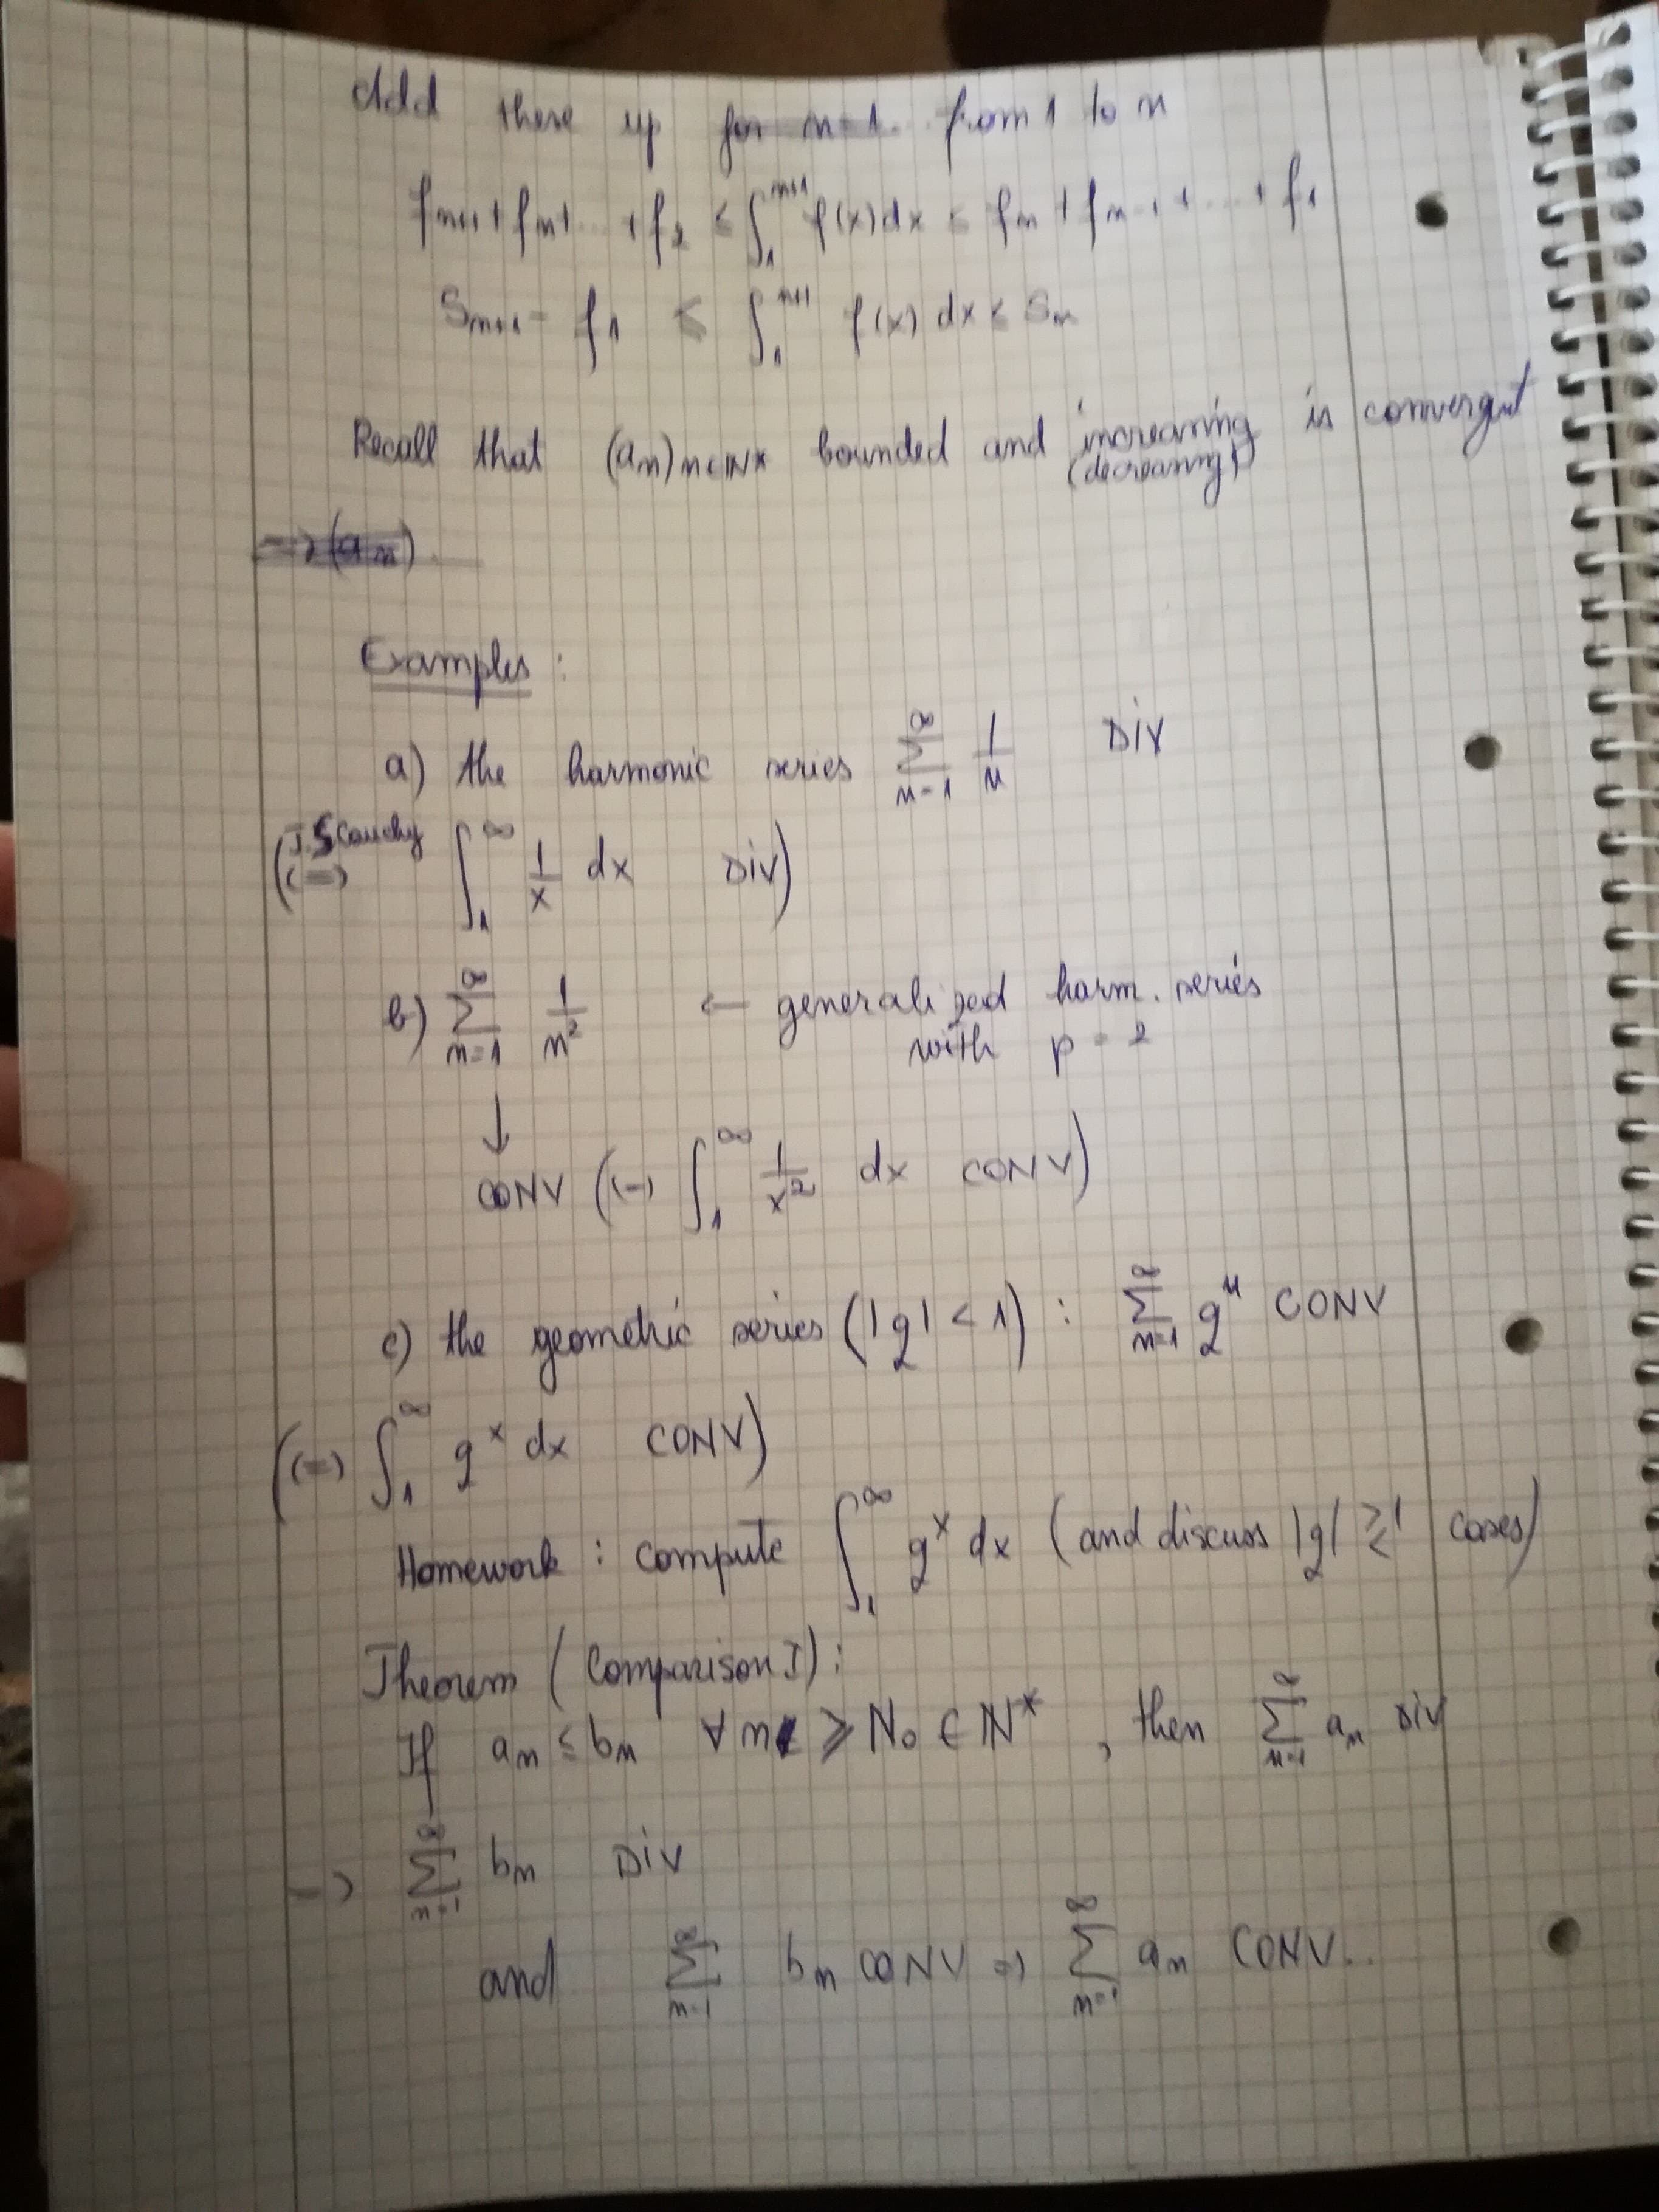 Add these up for n=1.. from 1 to n
f_{n+1} + f_n + ... + f_2 ≤ ∫_1^{n+1} f(x)dx ≤ f_n + f_{n-1} + ... + f_1
S_{n+1} - f_1 ≤ ∫_1^{n+1} f(x) dx ≤ S_n
Recall that (a_n)_{n∈ℕ*} bounded and increasing is convergent
(decreasing)
=> (a_n).
Examples :
a) the harmonic series ∑_{n=1}^∞ 1/n DIV
Cauchy
(<=> ∫_1^∞ 1/x dx DIV)
b) ∑_{n=1}^∞ 1/n² ← generalized harm. series
with p = 2
↓
CONV (<=> ∫_1^∞ 1/x² dx CONV)
c) the geometric series (|q| < 1) : ∑_{n=1}^∞ q^n CONV
(<=> ∫_1^∞ q^x dx CONV)
Homework : compute ∫_1^∞ q^x dx (and discuss |q| ⪌ 1 cases)
Theorem (Comparison I) :
If a_n ≤ b_n ∀ n ≥ N_0 ∈ ℕ*, then ∑_{n=1}^∞ a_n DIV
=> ∑_{n=1}^∞ b_n DIV
and ∑_{n=1}^∞ b_n CONV => ∑_{n=1}^∞ a_n CONV..